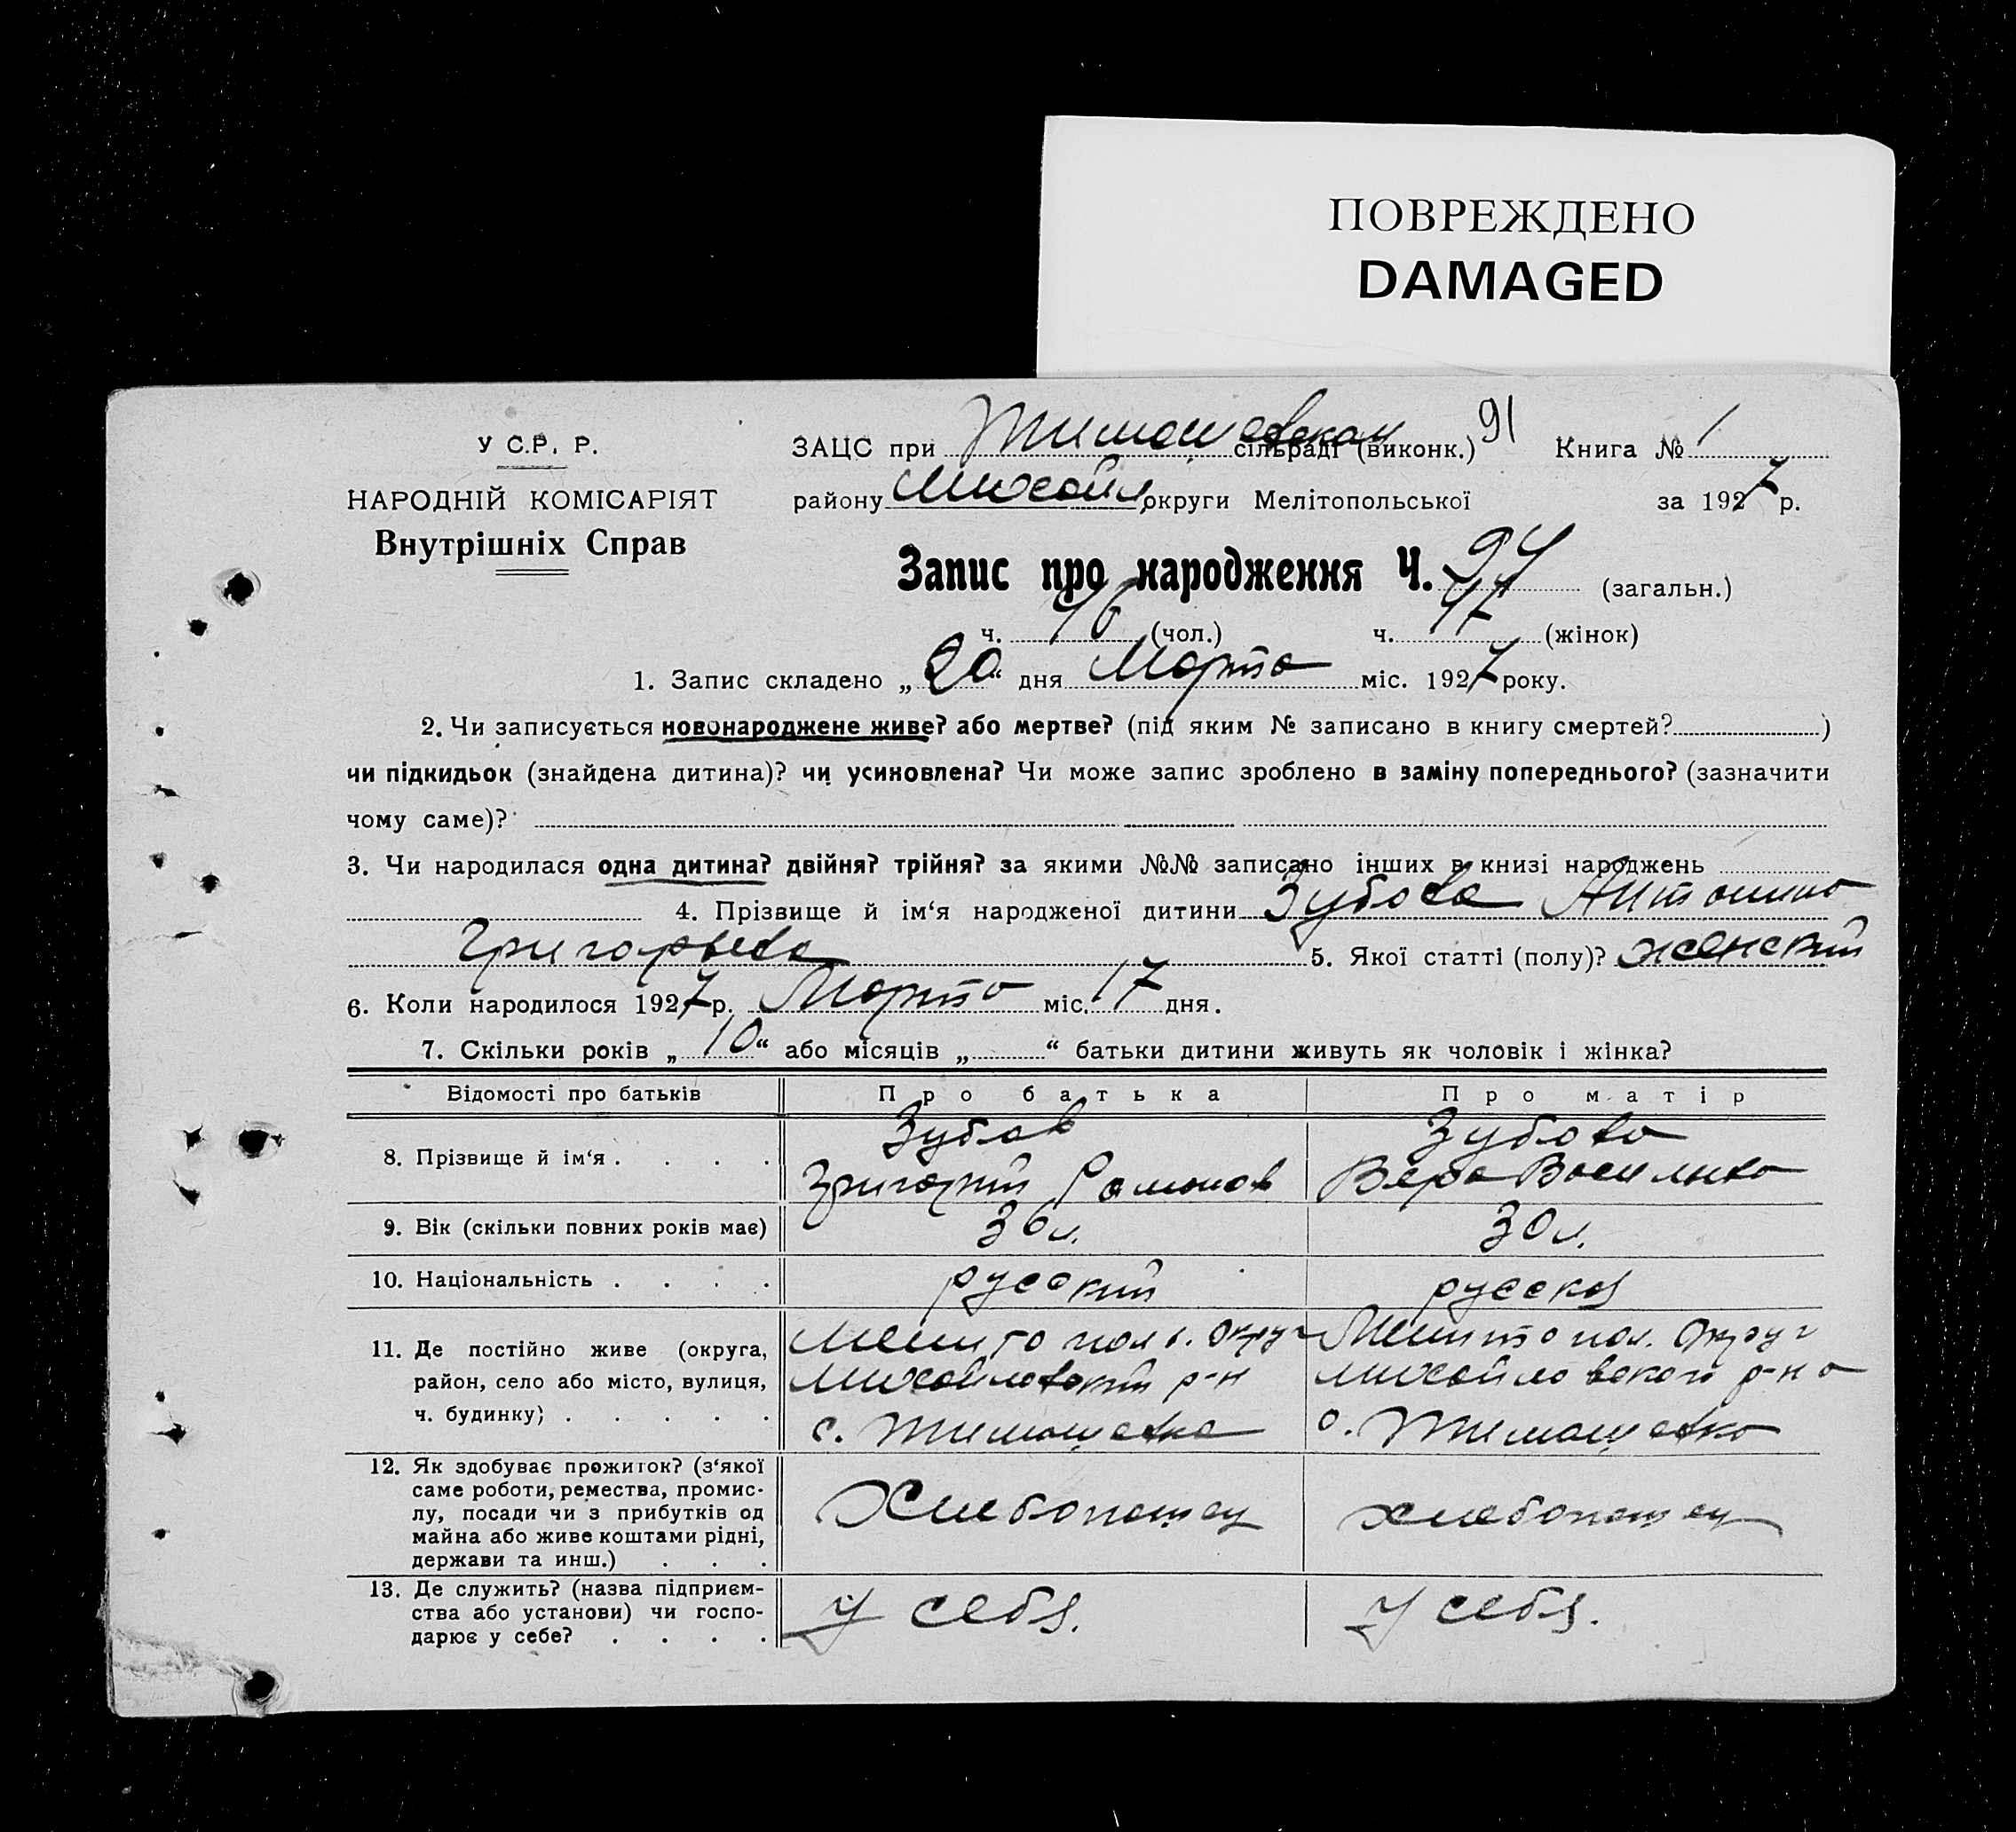 ПОВРЕЖДЕНО
DAMAGED
У С.Р. Р.
НАРОДНІЙ КОМІСАРІЯТ
Внутрішніх Справ
ЗАЦС при Тимошевском сільраді (виконк.) 91 Книга № 1
району Михайл. округи Мелітопольської за 1927 р.
Запис про народження Ч. 94 (загальн.)
ч. 46 (чол.) ч. 47 (жінок)
1. Запис складено „20“ дня Марта міс. 1927 року.
2. Чи записується новонароджене живе? або мертве? (під яким № записано в книгу смертей? )
чи підкидьок (знайдена дитина)? чи усиновлена? Чи може запис зроблено в заміну попереднього? (зазначити
чому саме)?
3. Чи народилася одна дитина? двійня? трійня? за якими №№ записано інших в книзі народжень
4. Прізвище й ім‘я народженої дитини Зубова Антонина
Григорьева 5. Якої статті (полу)? женский
6. Коли народилося 1927 р. Марта міс. 17 дня.
7. Скільки років „10“ або місяців „ “ батьки дитини живуть як чоловік і жінка?
Відомості про батьків Про батька Про матір
8. Прізвище й ім‘я . . . . Зубов Григорий Романов Зубова Вера Васильева
9. Вік (скільки повних років має) 36 л. 30 л.
10. Національність . . . . русский русская
11. Де постійно живе (округа, Мелитопол. округ Мелитопол. Округ
район, село або місто, вулиця, Михайловский р-н Михайловского р-на
ч. будинку) . . . . . с. Тимошевка с. Тимошевка
12. Як здобуває прожиток? (з‘якої
саме роботи, ремества, промис-
лу, посади чи з прибутків од Хлебопашец хлебопашец
майна або живе коштами рідні,
держави та инш.) . . .
13. Де служить? (назва підприєм-
ства або установи) чи госпо- У себя. У себя.
дарює у себе? . . . .